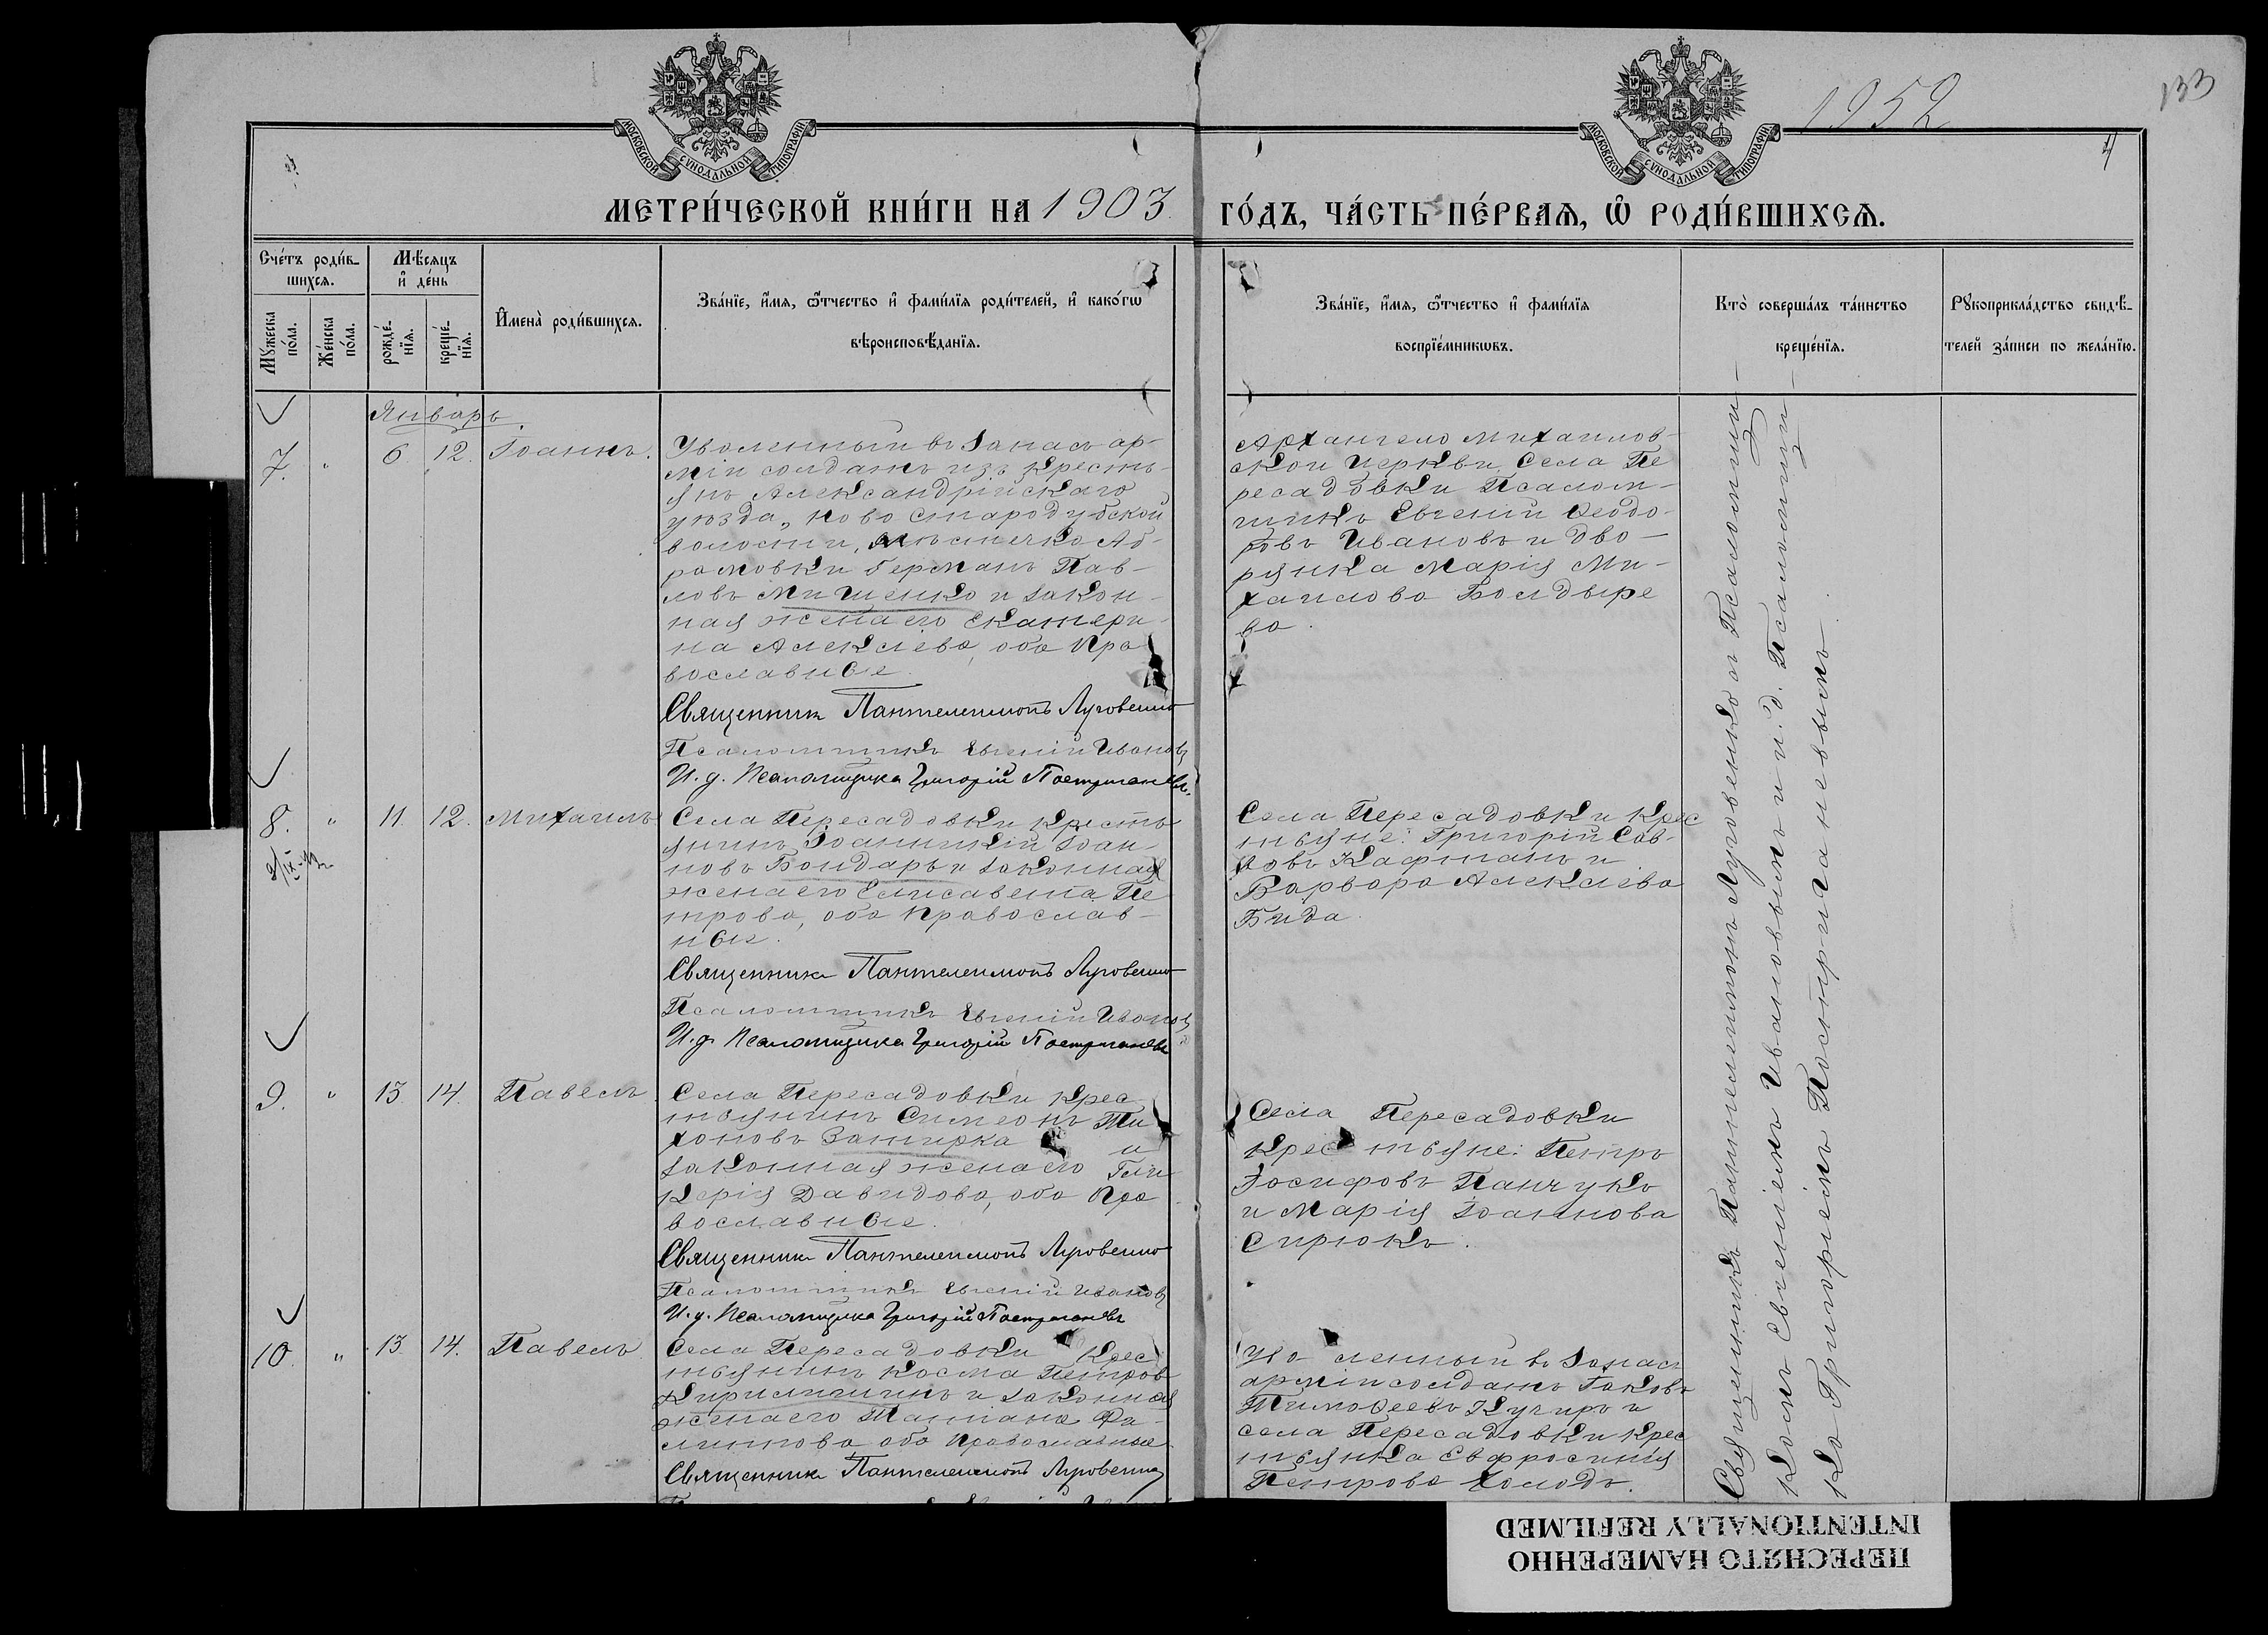 133
1952
4
МОСКОВСКОЙ СѴНОДАЛЬНОЙ ТИПОГРАФІИ
МОСКОВСКОЙ СѴНОДАЛЬНОЙ ТИПОГРАФІИ
МЕТРИ́ЧЕСКОЙ КНИ́ГИ НА 1903 ГО́ДЪ, ЧА́СТЬ ПЕ́РВАѦ, Ѿ РОДИ́ВШИХСѦ.
Сче́тъ роди́в-
шихсѧ.
Мꙋ́жеска по́ла.
Же́нска по́ла.
Мѣ́сѧцъ и҆ де́нь
рожде́-нїѧ.
креще́-нїѧ.
И҆мена̀ роди́вшихсѧ.
Зва́нїе, и҆́мѧ, ѻ҆́тчество и҆ фами́лїѧ роди́телей, и҆ како́гѡ
вѣроисповѣ́данїѧ.
Зва́нїе, и҆́мѧ, ѻ҆́тчество и҆ фами́лїѧ
воспрїе́мникѡвъ.
Кто̀ соверша́лъ та́инство
креще́нїѧ.
Рꙋкоприкла́дство свидѣ́-
телей за́писи по жела́нїю.
Январь
7. " 6. 12. Іоаннъ.
Уволенный въ запасъ ар-
міи солдатъ изъ кресть-
янъ Александрійскаго
уѣзда, Ново Стародубской
волости, мѣстечка Аб-
рамовки Германъ Пав-
ловъ Мишенко и закон-
ная жена его Екатери-
на Алексіева, оба Пра
вославные.
Священникъ Пантелеимонъ Луговенко
Псаломщикъ Евгеній Ивановъ
И. д. Псаломщика Григорій
Архангело Михаилов-
ской церкви, Села Пе
ресадовки Псалом-
щикъ Евгеній Ѳеодо-
ровъ Ивановъ и дво-
рянка Марія Ми-
хаилова Болдыре
ва.
8. " 11. 12. Михаилъ
Села Пересадовки кресть
янинъ Іоанникій Іоан-
новъ Бондарь и законная
жена его Елисавета Пе
трова, оба Православ-
ные.
Священникъ Пантелеимонъ Луговенко
Псаломщикъ Евгеній Ивановъ
И. д. Псаломщика Григорій
Села Пересадовки крес
тьяне: Григорій Сав-
вовъ Кафтанъ и
Варвара Алексіева
Бида.
9. " 13. 14. Павелъ
Села Пересадовки крес
тьянинъ Симеонъ Ти
хоновъ Затирка и
законная жена его Гли
керія Давидова, оба Пра
вославные.
Священникъ Пантелеимонъ Луговенко
Псаломщикъ Евгеній Ивановъ
И. д. Псаломщика Григорій
Села Пересадовки
крестьяне: Петръ
Іосифовъ Панчукъ
и Марія Іоаннова
Сирюкъ.
10. " 13. 14. Павелъ
Села Пересадовки крес
тьянинъ Косма Петров
и законная
жена его Татіана
оба Православные.
Священникъ Пантелеимонъ Луговенко
Уволенный въ запасъ
арміи солдатъ Іаковъ
Тимоѳеевъ Кучиръ и
села Пересадовки крес
тьянка Евфросинія
Петрова Холодъ.
Священникъ Пантелеимонъ Луговенко съ Псаломщи-
комъ Евгеніемъ Ивановымъ и и. д. Псаломщи-
ка Григоріемъ
ПЕРЕСНЯТО НАМЕРЕННО
INTENTIONALLY REFILMED